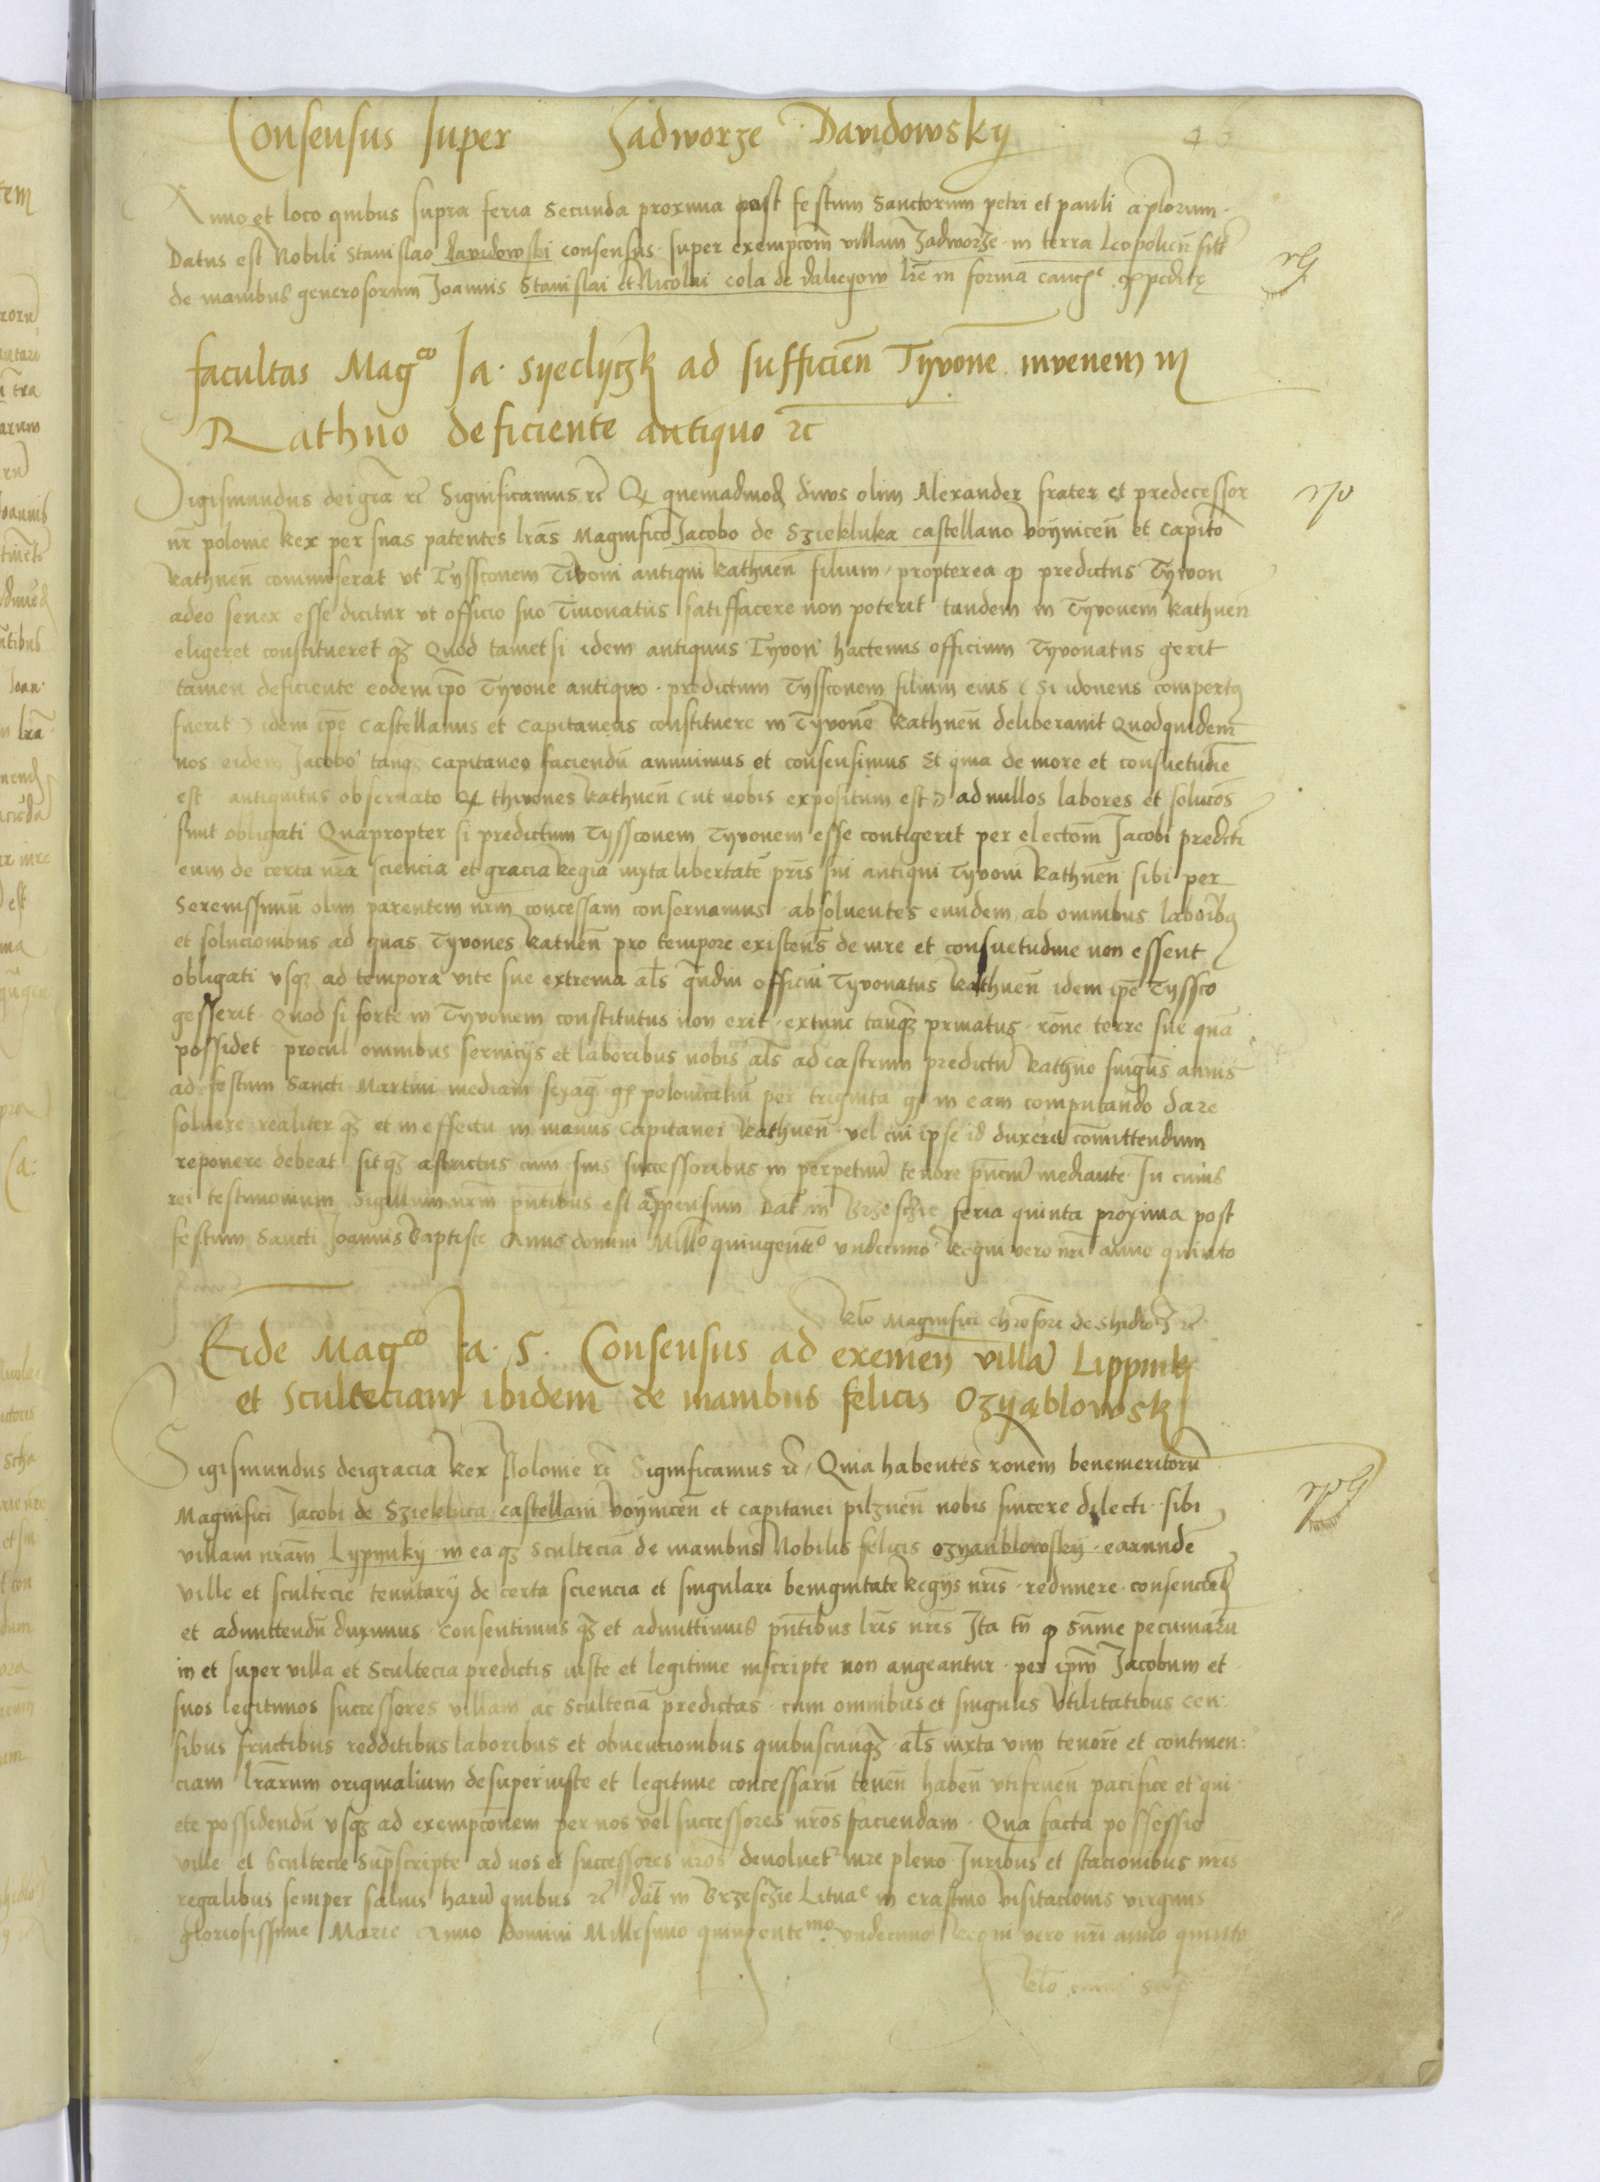 Consensus super Zadworze Davidowsky
Anno et loco quibus supra feria secunda proxima post festum Sanctorum petri et pauli aplorum
Datus est Nobili Stanislao davidowski consensus super exempcom villam Zadworze in terra Leopolien sitt
de manibus generosorum Joannis Stanislai et Nicolai cola de daliegow lre in forma expedite
facultas Magco Ja. Syeclyczk ad sufficien Tyvone iuvenem in
Rathno deficiente antiquo rc
Sigismundus dei gra rc Significamus rc Q quemadmod divus olim Alexander frater et predecessor
nr polonie Rex per suas patentes lras Magnifico Jacobo de Sziekluka castellano voynicen et capito
Rathnen commiserat ut Tyssconem Tivoni antiqui Rathnen filium propterea q predictus Tyvon
adeo senex esse dicitur ut officio suo Tiuonatus satisfacere non poterit tandem in Tyvonem Rathnen
eligeret constitueret qz Quod tametsi idem antiquus Tyvon hactenus officium Tyvonatus gerit
tamen deficiente eodem ipo Tyvone antiquo predictum Tyssconem filium eius (Si idoneus compertq
fuerit) idem ipe castellanus et capitaneus constituere in Tyvone Rathnen deliberavit Quodquidem
nos eidem Jacobo tanq capitaneo faciendu annuimus et consensimus Et quia de more et consuetudie
est antiquitus observato Q thivones Rathnen (ut nobis expositum est) ad nullos labores et solucos
sunt obligati Quapropter si predictum Tyssconem Tyvonem esse contigerit per electom Jacobi predicti
eum de certa nra sciencia et gracia Regia iuxta libertate pris sui antiqui Tyvoni Rathnen sibi per
Serenissimu olim parentem nrm concessam conservamus absolventes eundem ab omnibus laboribq
et solucionibus ad quas Tyvones Ratnen pro tempore existens de iure et consuetudine non essent
obligati usqz ad tempora vite sue extrema als qudiu officiu Tyvonatus Rathnen idem ipe Tyssco
gesserit Quod si forte in Tyvonem constitutus non erit extunc tanqz privatus rone terre sue qua
possidet procul omnibus serviciis et laboribus nobis als ad castrum predictu Rathno singus annis
ad festum Sancti Martini mediam sexag gr polonicaliu per triginta gr in eam computando dare
solvere realiter qz et in effectu in manus capitanei Rathnen vel cui ipse id duxerit comittendum
reponere debeat sit qz astrictus cum suis successoribus in perpetuu tenore pnciu mediante In cuius
rei testimonium Sigillum nrm pntibus est appensum Dat in Brzesczie feria quinta proxima post
festum Sancti Joannis Baptiste Anno domini Millo quingenteo undecimo Regni vero nri anno quinto
Rlo Magnifici chrofori de Shidlo rc
Eide Magco Ja. S. Consensus ad exemen villa Lippnik
et Sculteciam ibidem de manibus felicis Ozyablowsk
Sigismundus dei gracia Rex Polonie rc Significamus rc Quia habentes ronem benemeritoru
Magnifici Jacobi de Sziekluca castellani voynicen et capitanei pilznen nobis sincere dilecti sibi
villam nram Lypynky in ea qz Scultecia de manibus Nobilis felicis ozyanblowsky earunde
ville et scultecie tenutarij de certa sciencia et singulari benignitate Regijs nris redimere consenciend
et admittendu duximus Consentimus qz et admittimus pntibus lris nris Ita tn q sume pecuniaru
in et super villa et Scultecia predictis iuste et legitime inscripte non augeantur per ipm Jacobum et
suos legitimos successores villam ac Scultecia predictas cum omnibus et singulis utilitatibus cen:
sibus fructibus redditibus laboribus et obvencionibus quibuscunqz als iuxta vim tenore et continen:
ciam lrarum originalium desuper iuste et legitime concessaru tenen haben utifruen pacifice et qui
ete possidendu usqz ad exempconem per nos vel successores nros faciendam Qua facta possessio
ville et Scultecie Supscripte ad nos et successores nros devolvet iure pleno Juribus et stacionibus nris
regalibus semper salvis haru quibus rc dat in Brzesczie Lituae in crastino visitacionis virginis
gloriosissime Marie Anno domini Millesimo quingentemo undecimo Regni vero nri anno quinto